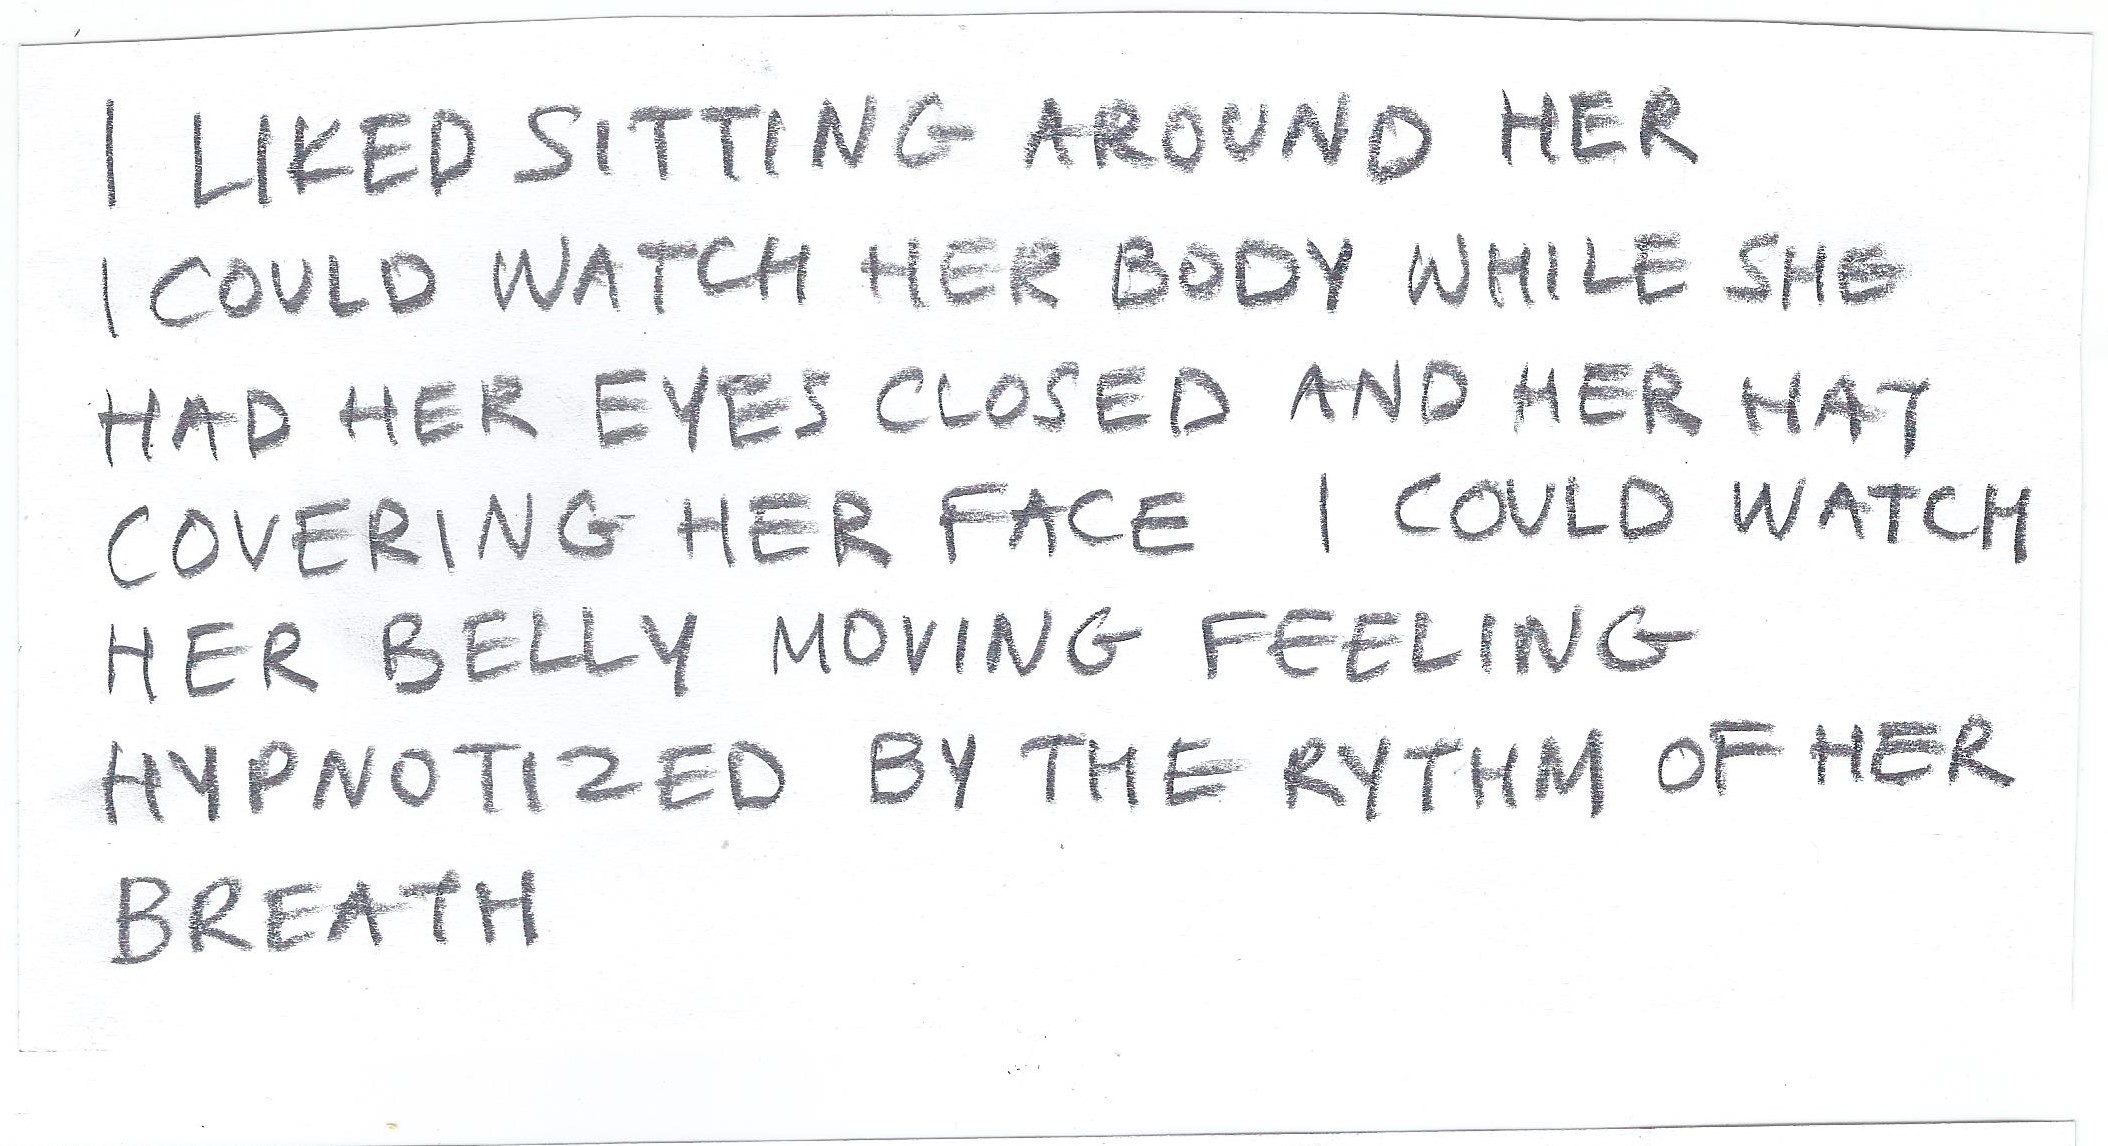 I LIKED SITTING AROUND HER
I COULD WATCH HER BODY WHILE SHE
HAD HER EYES CLOSED AND HER HAT
COVERING HER FACE I COULD WATCH
HER BELLY MOVING FEELING
HYPNOTIZED BY THE RYTHM OF HER
BREATH